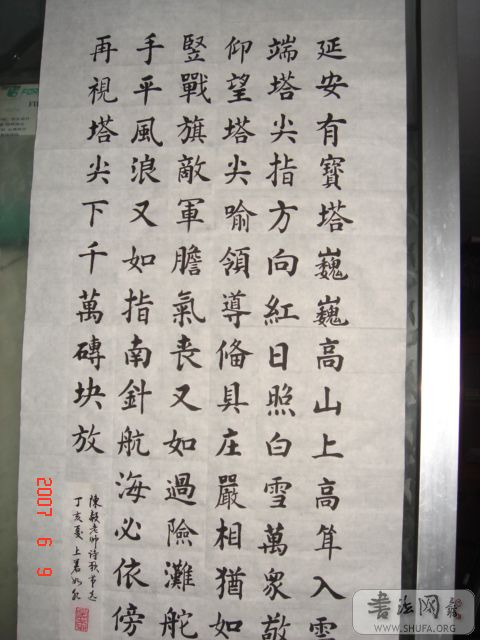 延安有寶塔巍巍高山上高耸入雲
端塔尖指方向紅日照白雪萬眾敬
仰望塔尖喻領導俻具庄嚴相猶如
竪戰旗敵軍膽氣丧又如過險灘舵
手平風浪又如指南針航海必依傍
再視塔尖下千萬磚块放
陳毅老帥诗歌节志
丁亥夏上
2007 6 9
書法网
WWW.SHUFA.ORG